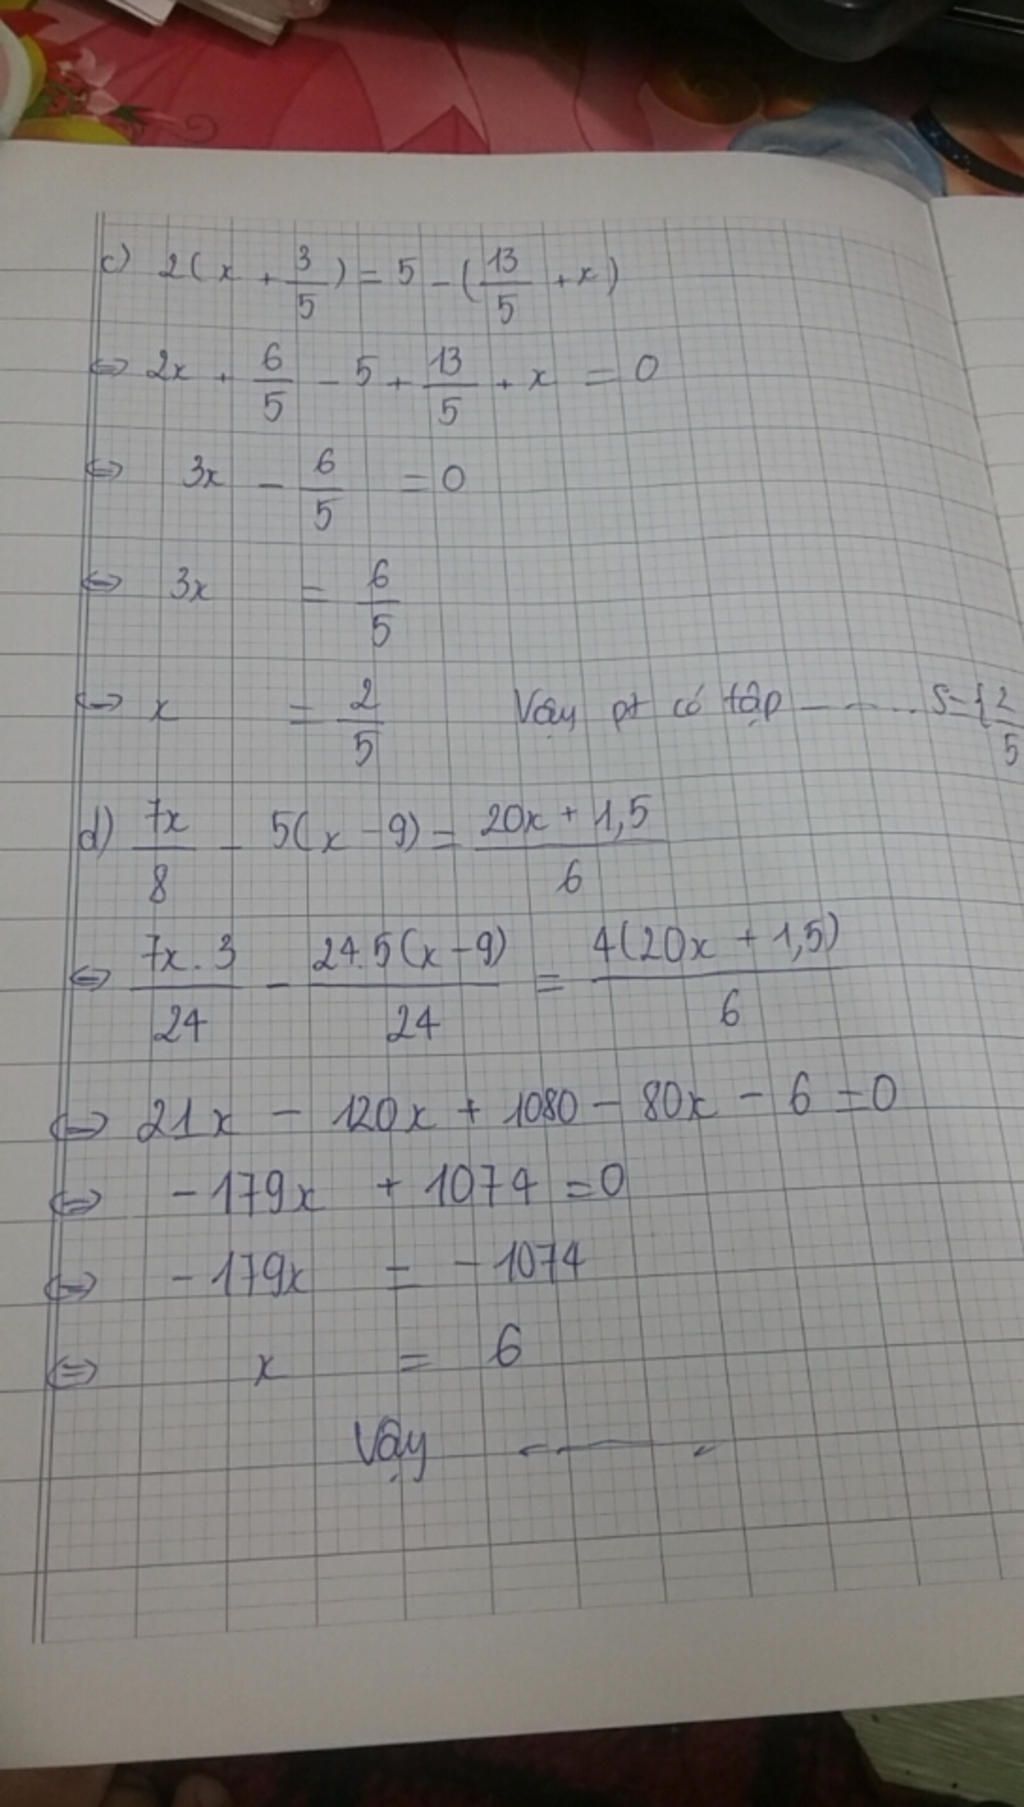 c) 2(x + 3/5) = 5 - (13/5 + x)
⇔ 2x + 6/5 - 5 + 13/5 + x = 0
⇔ 3x - 6/5 = 0
⇔ 3x = 6/5
⇔ x = 2/5 Vậy pt có tập - - - . . S={2/5
d) 7x/8 - 5(x - 9) = 20x + 1,5/6
⇔ 7x.3/24 - 24.5(x - 9)/24 = 4(20x + 1,5)/6
⇔ 21x - 120x + 1080 - 80x - 6 = 0
⇔ - 179x + 1074 = 0
⇔ - 179x = - 1074
⇔ x = 6
Vậy